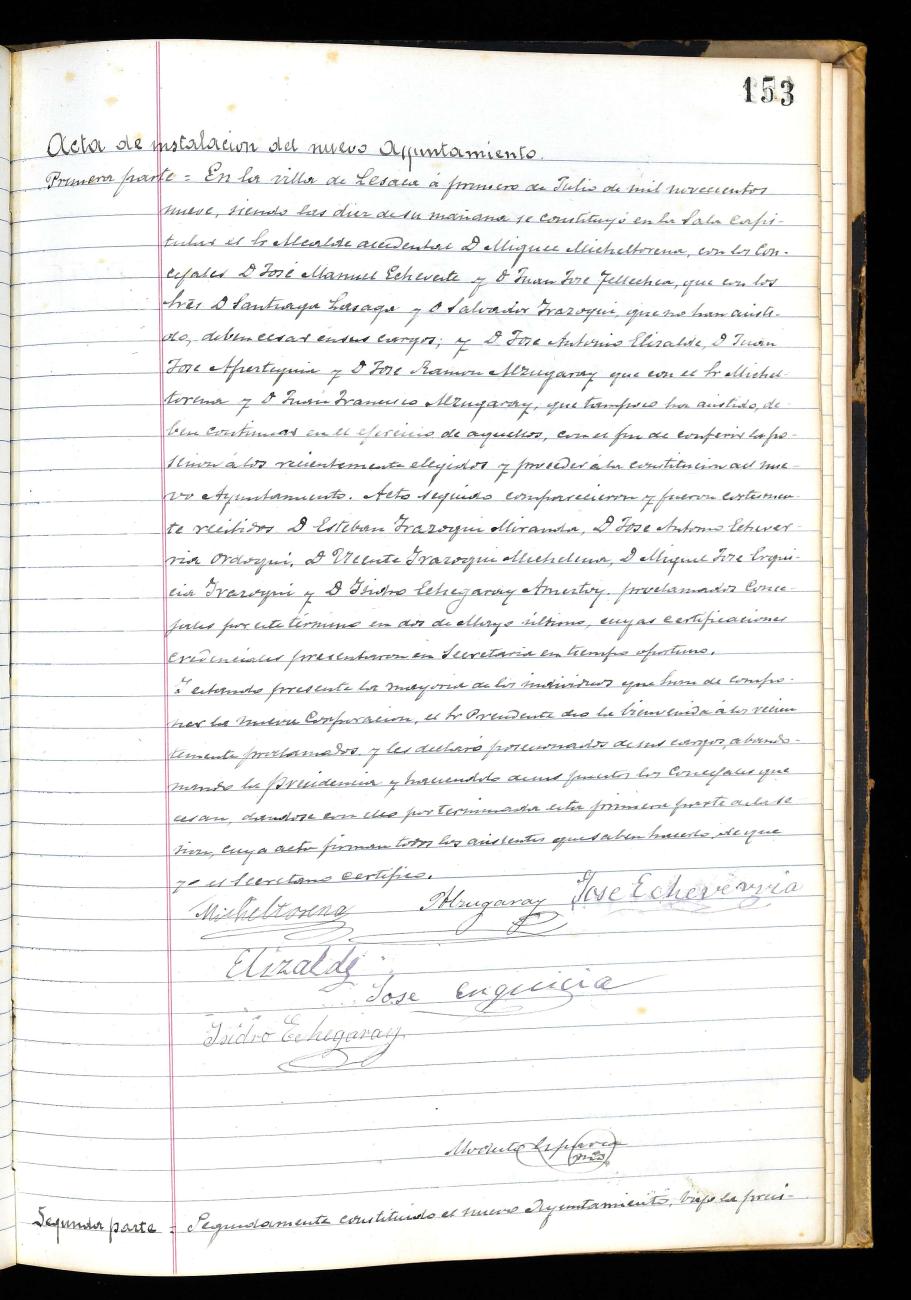 153
Acta de instalacion del nuevo Ayuntamiento.
Primera parte = En la villa de Lesaca á primero de Julio de mil novecientos
nueve, siendo las diez de su mañana se constituyó en la Sala Capi-
tular el Sr Alcalde accidental D Miguel Micheltorena, con los Con-
cejales D José Manuel Echeveste y D Juan Jose Tellechea, que con los
Sres D Santiago Lasaga y D Salvador Irazoqui, que no han asisti-
do, deben cesar en sus cargos; y D Jose Antonio Elizalde, D Juan
Jose Apesteguia y D Jose Ramon Alzugaray que con el Sr Michel-
torena y D Juan Francisco Alzugaray, que tampoco ha asistido, de-
ben continuar en el ejercicio de aquellos, con el fin de conferir la po-
sesion á los recientemente elegidos y proceder á la constitucion del nue-
vo Ayuntamiento. Acto seguido comparecieron y fueron cortesmen-
te recibidos D Esteban Irazoqui Miranda, D Jose Antonio Echever-
ria Ordoqui, D Vicente Irazoqui Michelena, D Miguel Jose Erqui-
cia Irazoqui y D Isidro Echegaray Amestoy. proclamados Conce-
jales por este término en dos de Mayo último, cuyas certificaciones
credenciales presentaron en Secretaria en tiempo oportuno.
Y estando presente la mayoria de los individuos que han de compo-
ner la nueva Corporacion, el Sr Presidente dió la bienvenida á los recien
temente proclamados y les declaró posecionados de sus cargos, abando-
nando la presidencia y haciendolo de sus puestos los Concejales que
cesan, dandose con ello por terminada esta primera parte de la se
sion, cuya acta firman todos los asistentes que saben hacerlo, de que
yo el Secretario certifico.
Micheltorena Alzugaray Jose Echeverria
Elizalde
Jose Erquicia
Isidro Echegaray
Modesto Esparza
Segunda parte = Seguidamente constituido el nuevo Ayuntamiento, bajo la presi-